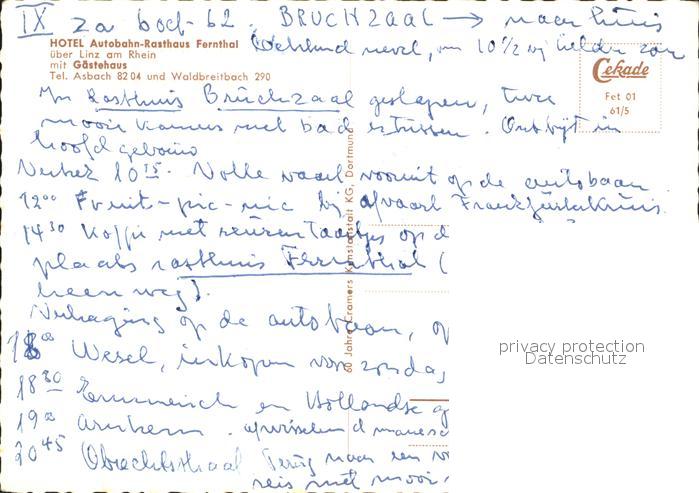 IX za 6 oct-62. BRUCHZAAL → naar huis
HOTEL Autobahn-Rasthaus Fernthal
über Linz am Rhein
mit Gästehaus
Tel. Asbach 82 04 und Waldbreitbach 290
Ochtend nevel, om 10 1/2 bij helder zon
Cekade
Fet 01
61/5
In Rasthuis Bruchzaal geslapen, twee
mooie kamers met bad ertussen. Ontbijt in
hoofdgebouw
Vertrek 10 15. Volle vaart vooruit op de autobaan
12 00 Fruit-pic-nic bij afvaart Frankfurterkruis.
14 30 Koffie met taartjes op d
plaats rasthuis Fernthal (
heenweg).
Vertraging op de autobaan, op
18 00 Wesel, inkopen voor zondag
18 30 Emmerich en Hollandse g
19 Arnhem.
20 45 Obrechtstraat Terug naar een
reis met mooi
60 Jahre Cramers Kunstanstalt KG, Dortmund
privacy protection
Datenschutz